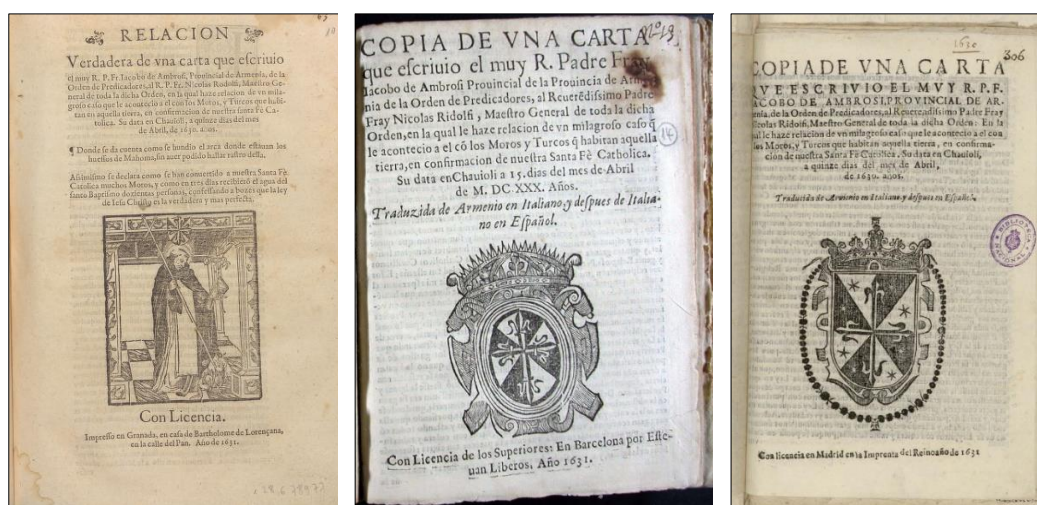 RELACION
Verdadera de vna carta que escriuio
el muy R. P. Fr. Iacobo de Ambrosi, Prouincial de Armenia, de la
Orden de Predicadores, al R. P. Fr. Nicolas Rodolfi, Maestro Ge-
neral de toda la dicha Orden, en la qual haze relacion de vn mila-
groso caso que le acontecio a el con los Moros, y Turcos que habi-
tan en aquella tierra, en confirmacion de nuestra santa Fè Ca-
tolica. Su data en Chauioli, a quinze dias del mes
de Abril, de 1630. años.
¶ Donde se da cuenta como se hundio el arca donde estauan los
huessos de Mahoma, sin auer podido hallar rastro della.
Assimismo se declara como se han conuertido a nuestra Santa Fè
Catolica muchos Moros, y como en tres dias recibierō el agua del
santo Baptismo dozientas personas, confessando a bozes que la ley
de Iesu Christo es la verdadera y mas perfecta.
Con Licencia.
Impresso en Granada, en casa de Bartholome de Lorençana,
en la calle del Pan. Año de 1631.
COPIA DE VNA CARTA
que escriuio el muy R. Padre Fray
Iacobo de Ambrosi Prouincial de la Prouincia de Arme-
nia de la Orden de Predicadores, al Reuerēdissimo Padre
Fray Nicolas Ridolfi, Maestro General de toda la dicha
Orden, en la qual le haze relacion de vn milagroso caso q̄
le acontecio a el cō los Moros y Turcos q̄ habitan aquella
tierra, en confirmacion de nuestra Santa Fè Catholica.
Su data en Chauioli a 15. dias del mes de Abril
de M. DC XXX. Años.
Traduzida de Armenio en Italiano, y despues de Italia-
no en Español.
14
Con Licencia de los Superiores: En Barcelona por Este-
uan Liberos, Año 1631.
1630
306
COPIA DE VNA CARTA
QVE ESCRIVIO EL MVY R. P. F.
IACOBO DE AMBROSI, PROVINCIAL DE AR-
menia, de la Orden de Predicadores, al Reuerendissimo Padre Fray
Nicolas Ridolfi, Maestro General de toda la dicha Orden: En la
qual le haze relacion de vn milagroso caso que le acontecio a el con
los Moros, y Turcos que habitan aquella tierra, en confirma-
cion de nuestra Santa Fè Catolica. Su data en Chauioli,
a quinze dias del mes de Abril,
de 1630. años.
Traduzida de Armenio en Italiano, y despues en Español.
BIBLIOTECA NACIONAL
Con licencia en Madrid en la Imprenta del Reino año de 1631